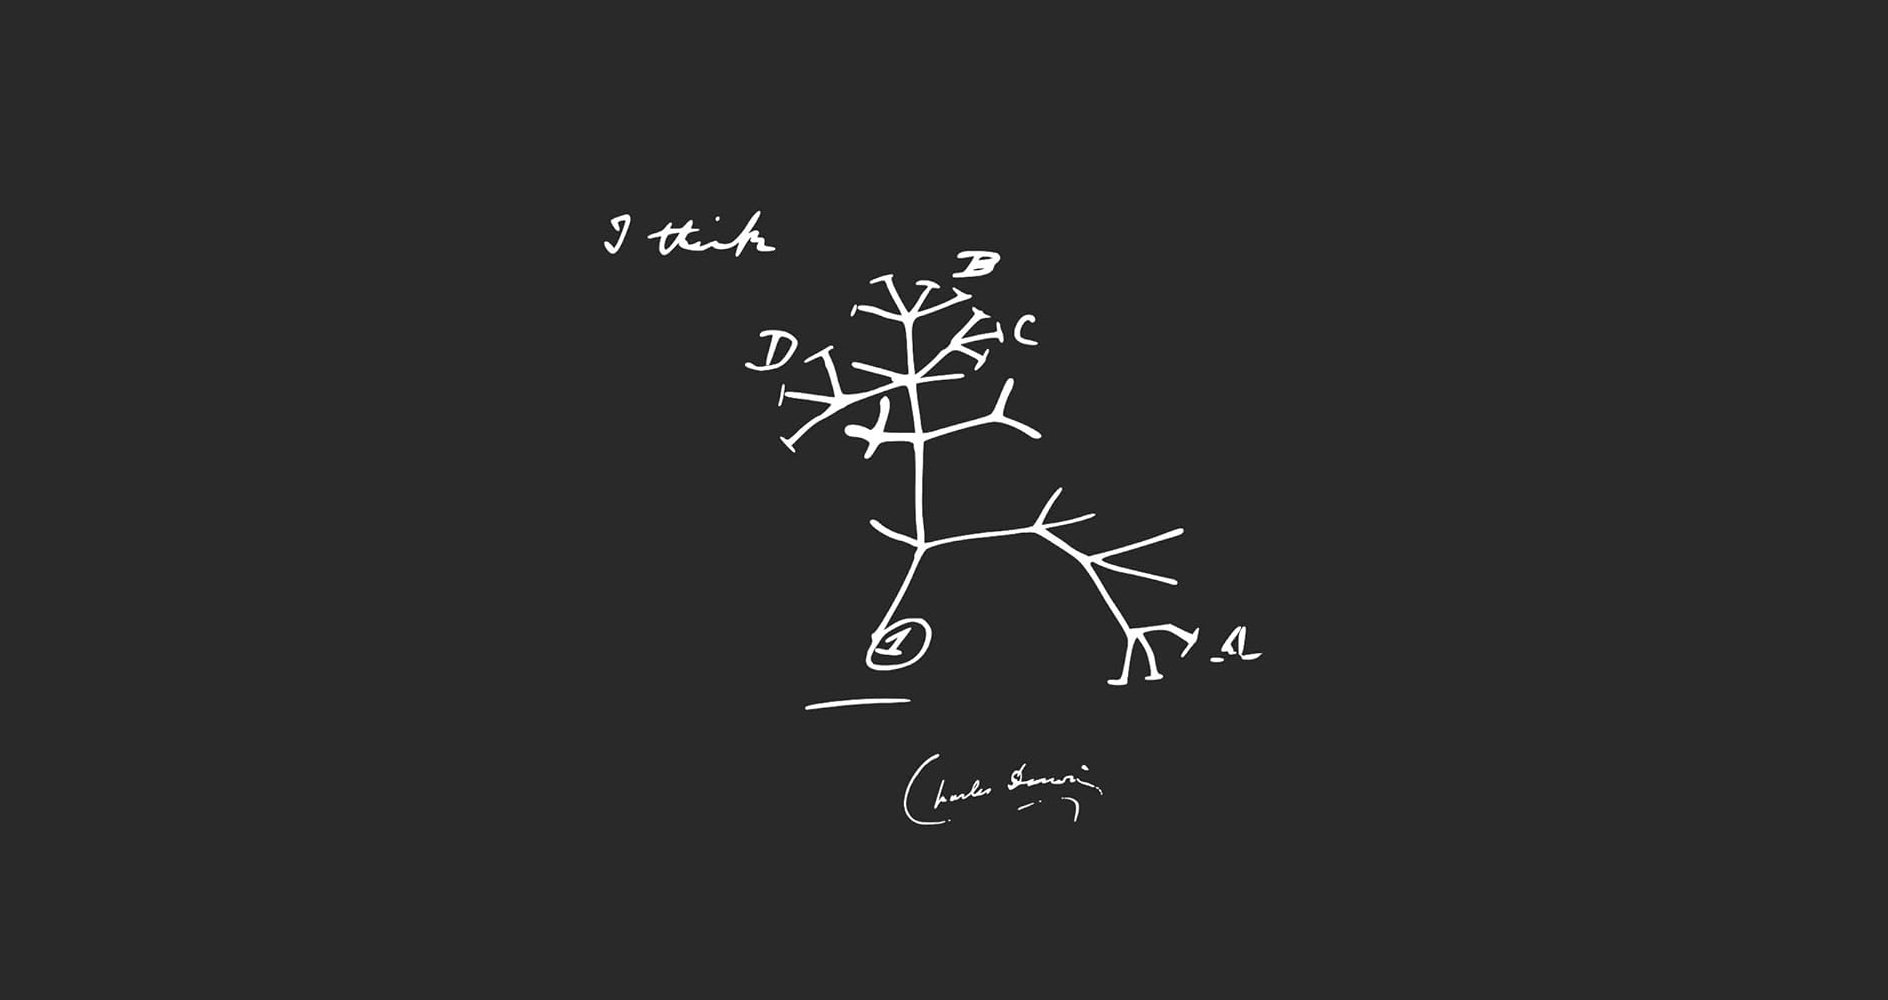 I think
B
C
D
A
1
Charles Darwin